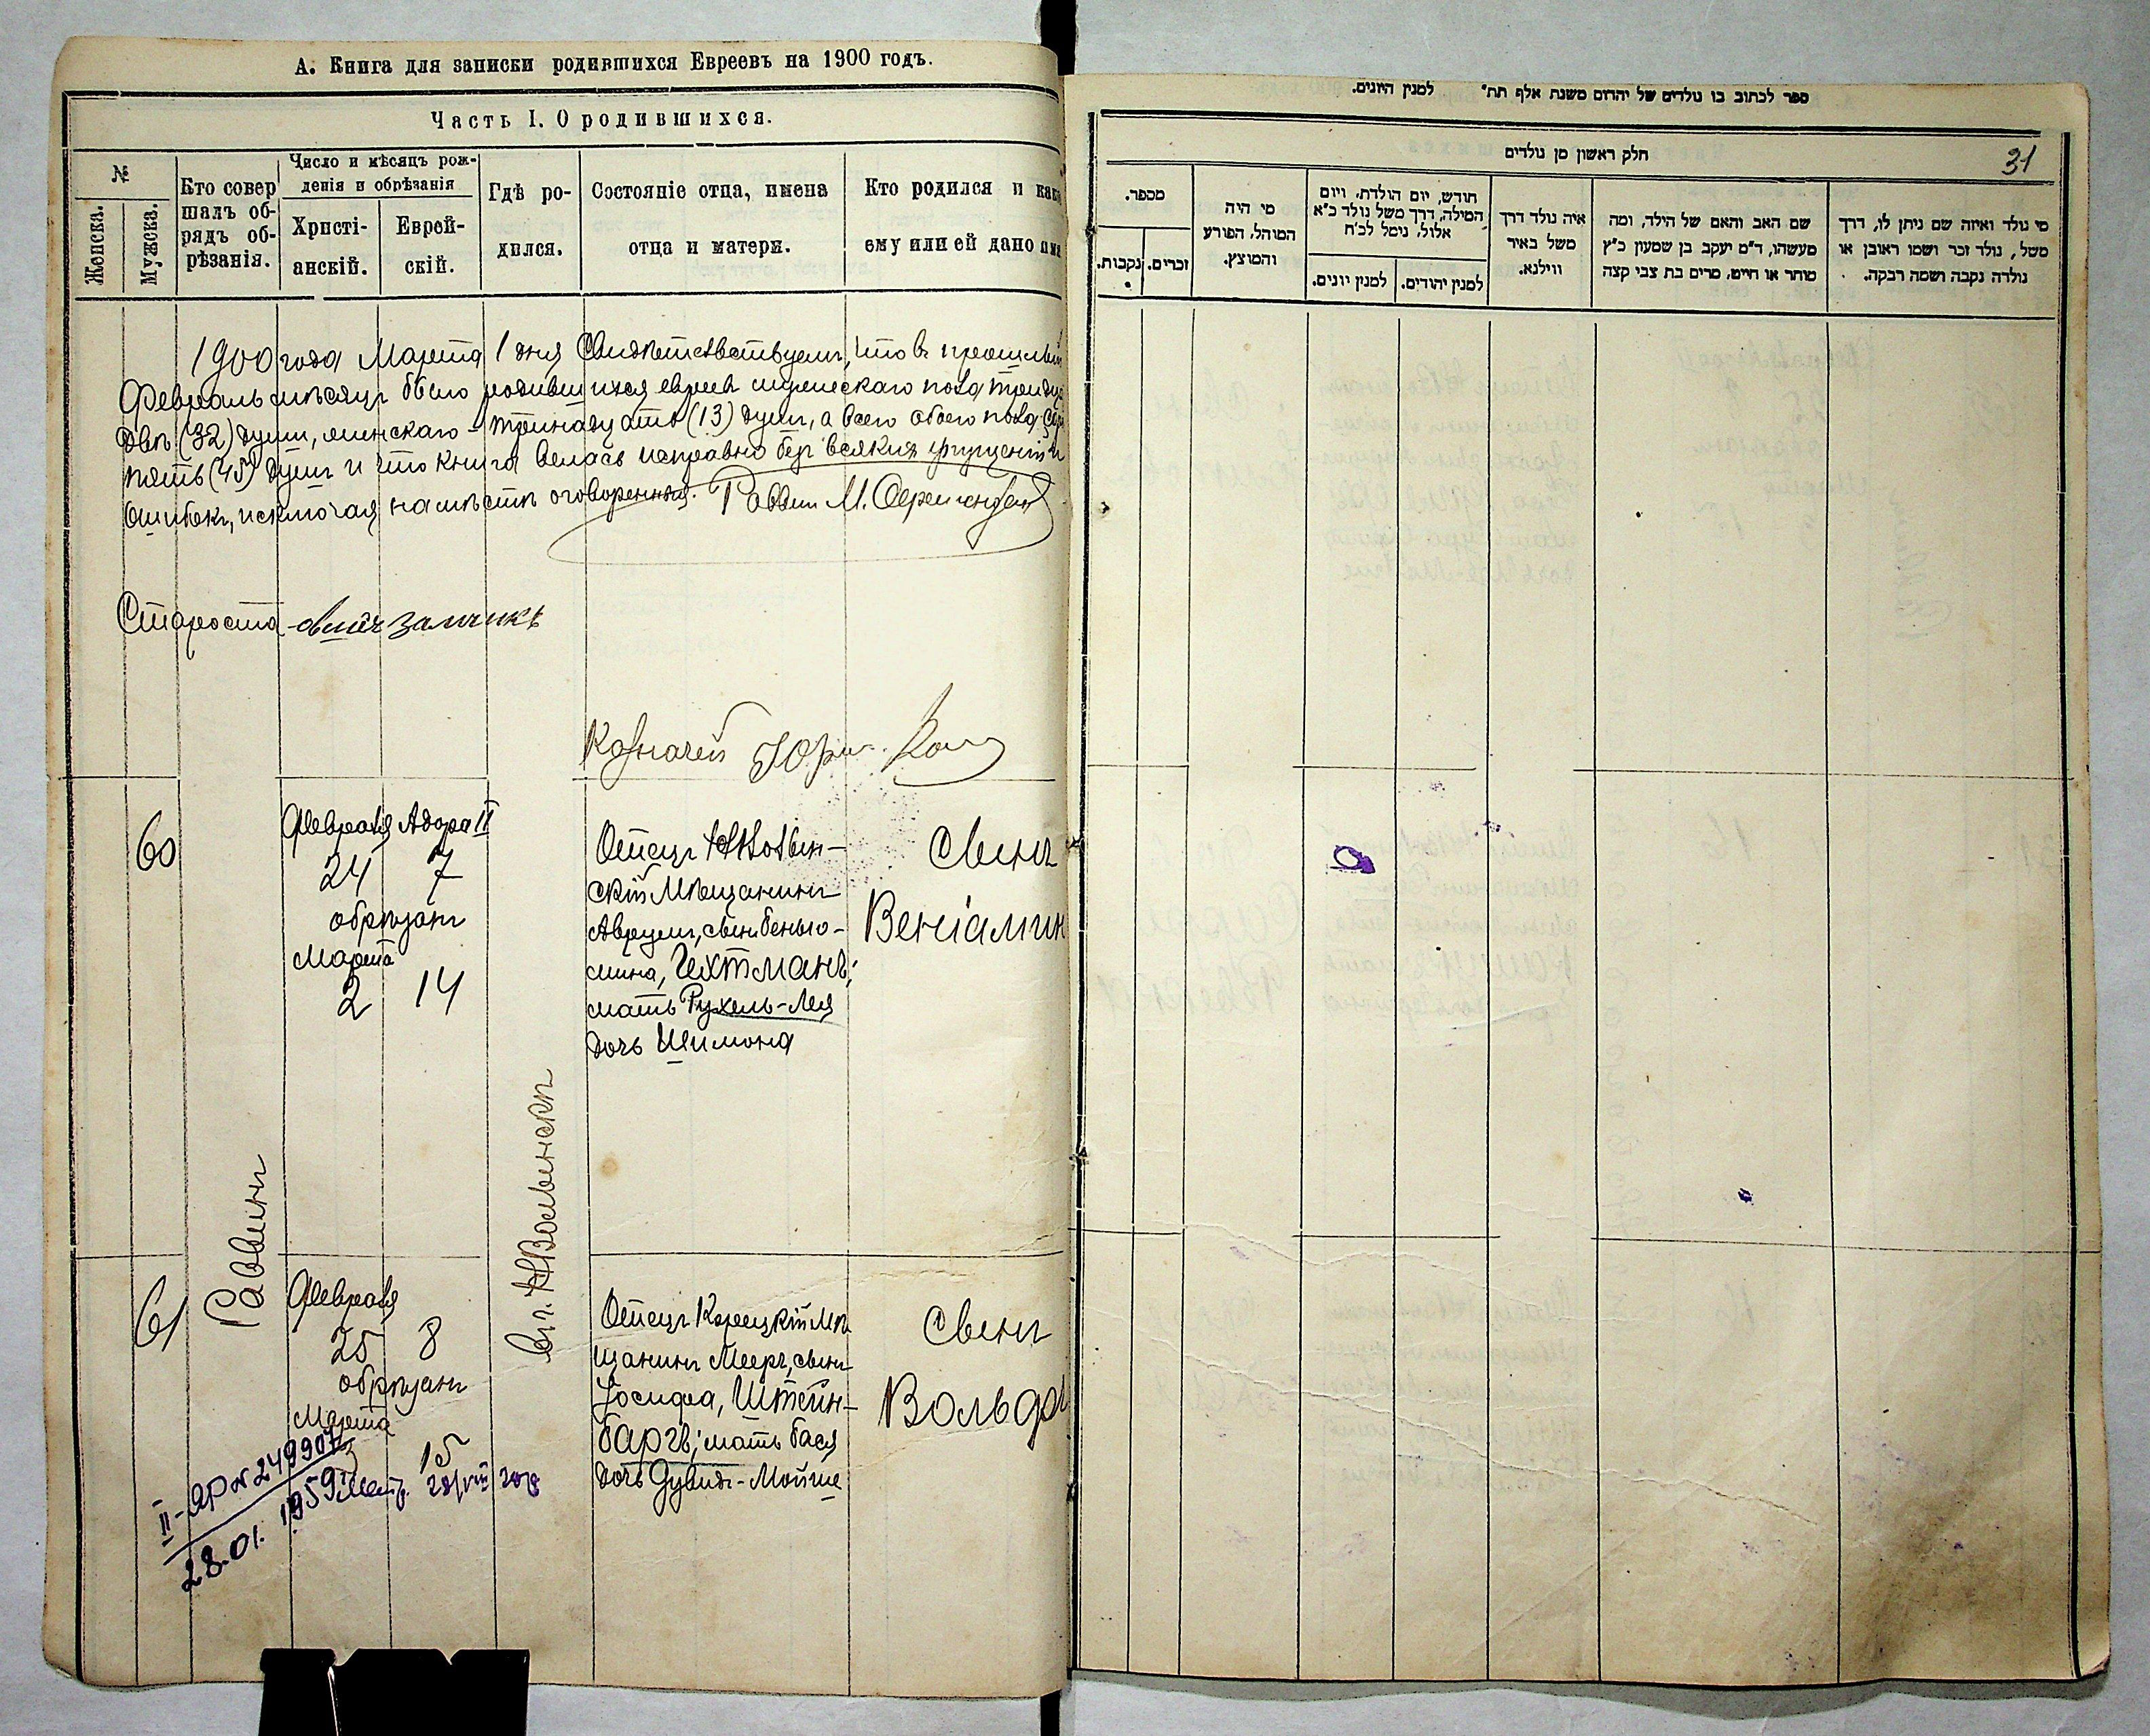 А. Книга для записки родившихся Евреевъ на 1900 годъ.
Часть I. О родившихся.
№
Женска.
Мужска.
Кто совер
шалъ об-
рядъ об-
рѣзанія.
Число и мѣсяцъ рож-
денія и обрѣзанія
Христі-
анскій.
Еврей-
скій.
Гдѣ ро-
дился.
Состояніе отца, имена
отца и матери.
Кто родился и как
ему или ей дано им
1900 года Марта 1 дня Свидѣтельствуемъ, что въ прошлый
Февраль мѣсяцъ было родившихся евреевъ мужескаго пола тридца
двѣ (32) души, женскаго - тринадцать (13) душъ, а всего обоего пола сор
пять (45) душъ и что книга велась исправно безъ всякихъ упущеній и
ошибокъ, исключая на мѣстѣ оговоренныя. Раввинъ М.
Староста
Казначей
60
Февраля Адора II
24 7
обрѣзанъ
Марта
2 14
Отецъ Н Волын-
скій Мѣщанинъ
Аврумъ, сынъ Беньо-
мина, Гехтманъ;
мать Рухель-Лея
дочь Шимона
Сынъ
Веніамин
Раввинъ
Въ г. НВолынскѣ
61
Февраля
25 8
обрѣзанъ
Марта
3 15
Отецъ Корецкій Мѣ
щанинъ Мееръ, сынъ
Іосифа, Штейн-
баргъ; мать Бася
дочь Дувидъ-Мойше
Сынъ
Вольф
II-АР № 249907
28.01. 1959
ספר לכתוב בו נולדים של יהדום משנת אלף תת" למנין היונים.
חלק ראשון מן נולדים
31
מספר.
זכרים.
נקבות.
מי היה
המוהל, הפורע
והמוצץ.
חודש, יום הולדת, ויום
המילה, דרך משל נולד כ"א
אלול, נימל לכ"ח
למנין יונים.
למנין יהודים.
איה נולד דרך
משל באיר
ווילנא.
שם האב והאם של הילד, ומה
מעשהו, ד"מ יעקב בן שמעון כ"ץ
סוחר או חייט, מרים בת צבי קצה
מי נולד ואיזה שם ניתן לו, דרך
משל, נולד זכר ושמו ראובן או
נולדה נקבה ושמה רבקה.